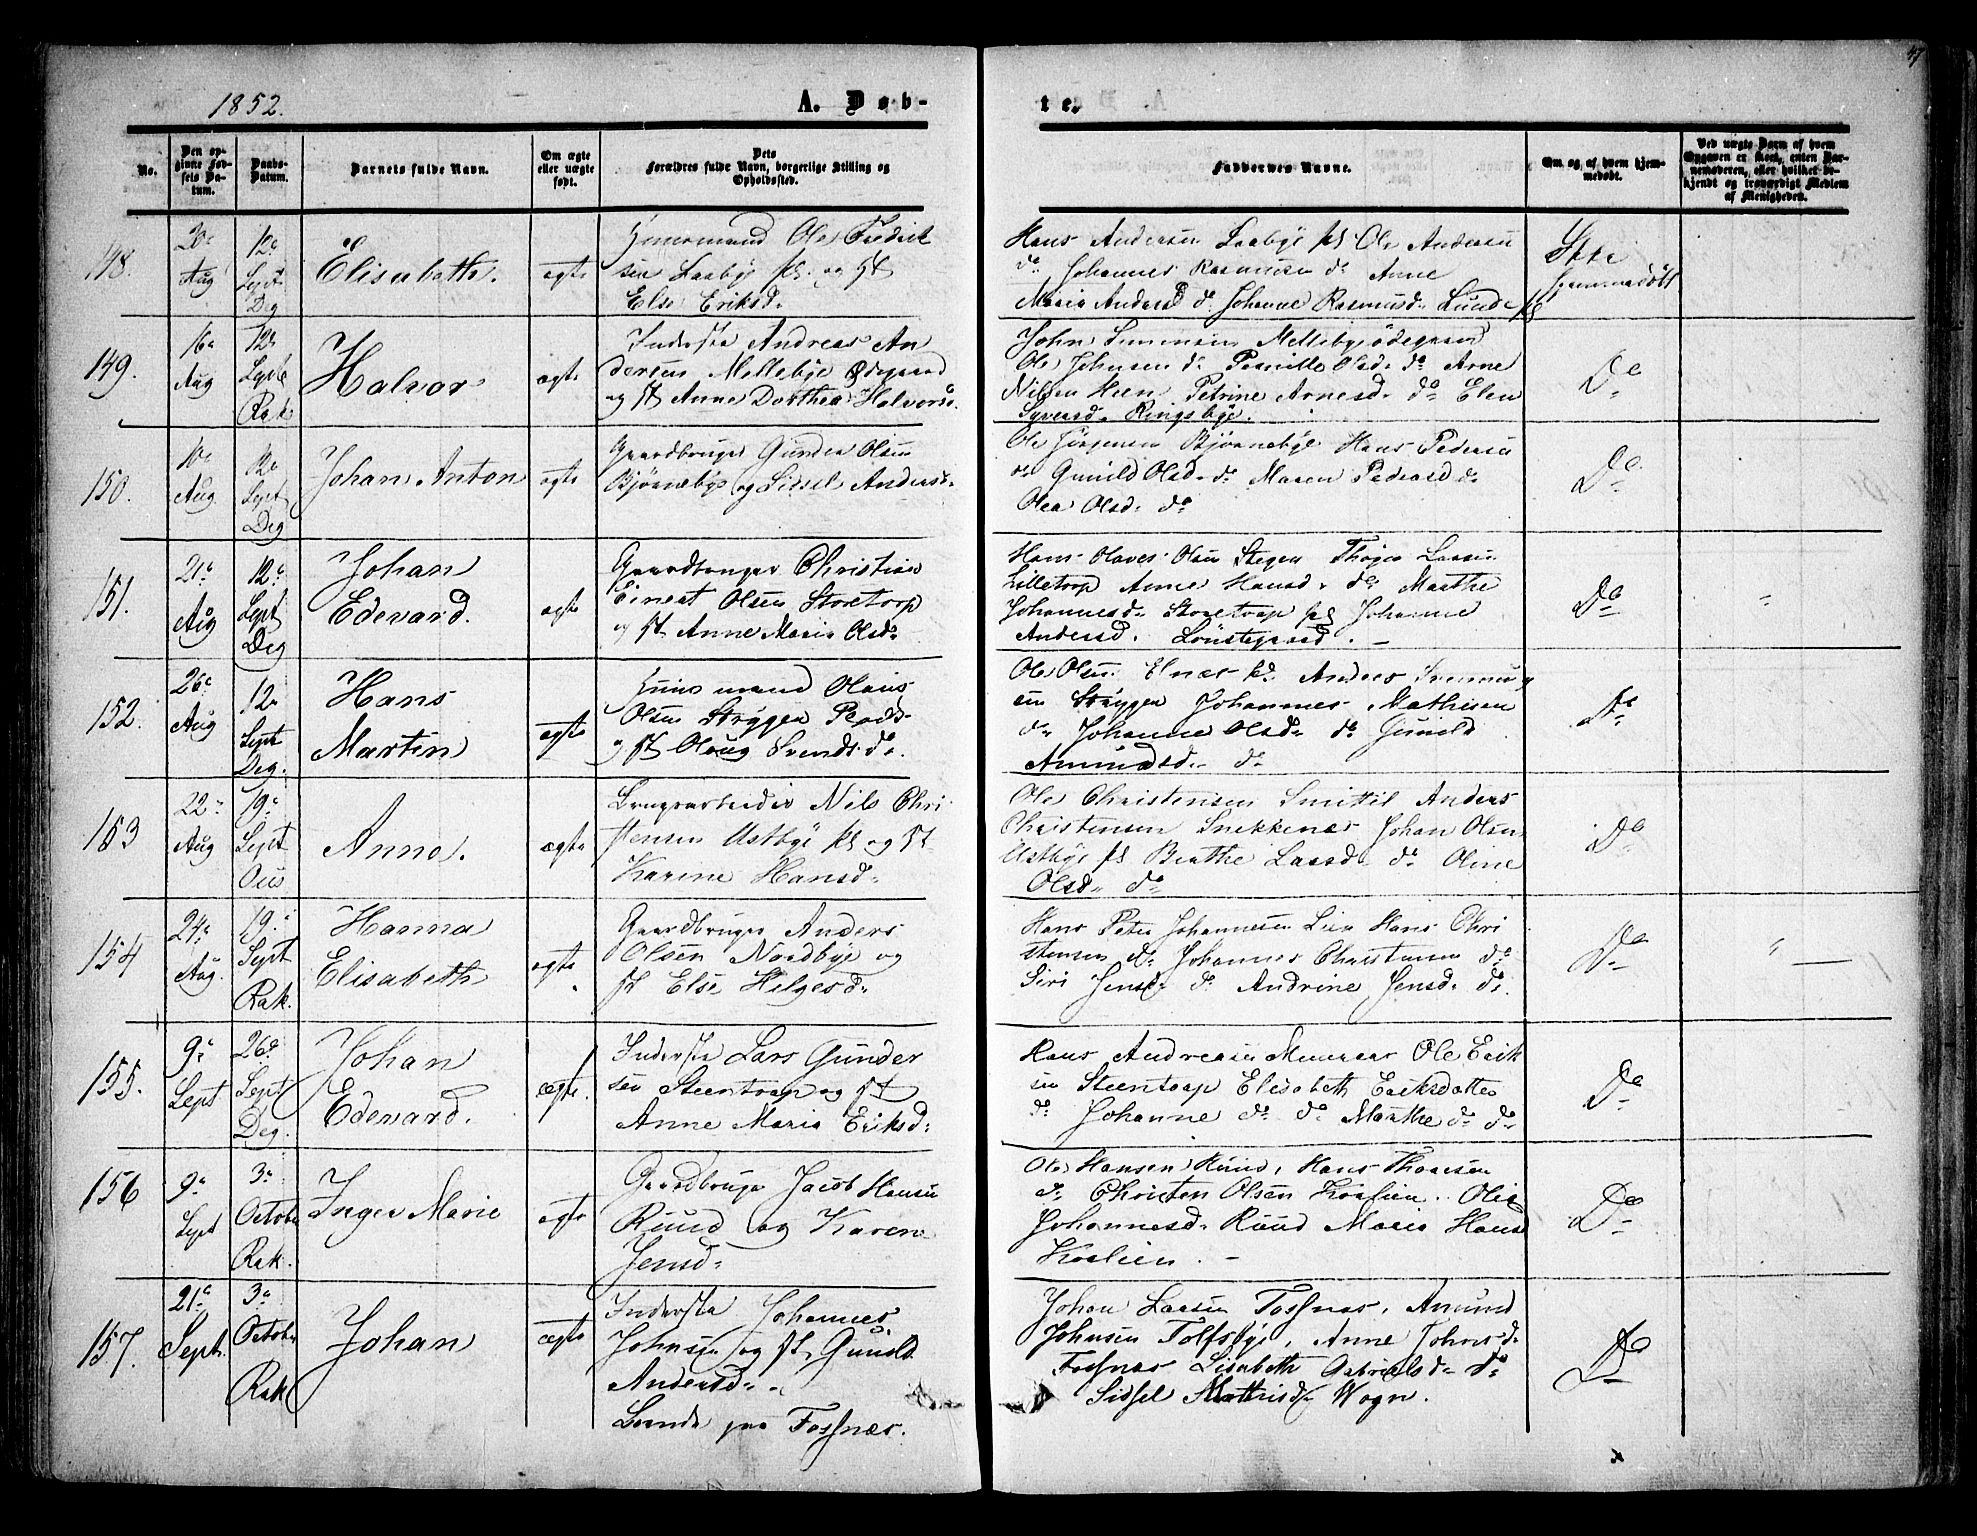 1852.
A. Døb-
te.
47
No.
Den op-
givne Fød-
sels Da-
tum.
Daabs-
Datum.
Barnets fulde Navn.
Om ægte
eller uægte
født.
Dets
Forældres fulde Navn, borgerlige Stilling og
Opholdssted.
Faddernes Navne.
Om og af hvem hjem-
medøbt.
Ved uægte Barn af hvem
Opgaven er skeet, enten Bar-
nemoderen, eller hvilket be-
kjendt og troværdigt Medlem
af Menigheden.
148.
20de
Aug
12de
Sept
Deg
Elisabeth.
ægte
Ole Fredrik
sen Laabye og
Else Eriksd.
Hans Andersen Laabye Ole Andersen
do Johannes Rasmusen do Anne
Maria Andersd do Johanne Rasmusd. Lund
Ikke
hjemmedøbt
149.
16de
Aug
12te
Sept
Rak
Halvor
ægte
Inderste Andreas An
dersen Mellebye Ødegaard
og Anne Dorthea Halvorsd.
John Simensen Mellebyødegaard
Ole Johnsen do Pernille Olsd. do Arne
Nilsen Heen Petrine Arnesd. do Elen
Syversd. Ringsbye.
Do
150.
10de
Aug
12te
Sept
Deg
Johan Anton
ægte
Gaardbruger Gunder Olsen
Bjørnebye og Sidsel Andersd.
Ole Jørgensen Bjørnebye Hans Pedersen
do Gunild Olsd. do Maren Pedersd do
Olea Olsd. do
Do
151.
21de
Aug
12te
Sept
Deg
Johan
Edevard.
ægte
Gaardbruger Christian
Einert Olsen Storetorp
og Anne Maria Olsd.
Hans Olaves Olsen Stegen Thojer Larsen
Lilletorp Anne Hansd. do Marthe
Johannesd. Storetorp Johanne
Andersd. Lønstegaard. –
Do
"
152.
26de
Aug
12te
Sept
Deg.
Hans
Martin
ægte
Huusmand Olaus
Olsen Strygen
og Oloug Svendsd.
Ole Olsen Elnes Anders
Strygen Johannes Mathisen
do Johanne Olsd. do Gunild
Amundsd. do
Do
153
22de
Aug
19de
Sept
Ous
Anne.
ægte
Brugsarbeider Nils Chri
stensen Ustbye og
Karine Hansd.
Ole Christensen Smittil Anders
Christensen Snekkenes Johan Olsen
Ustbye Berthe Larsd. do Oline
Olsd. do
Do
154
24de
Aug.
19de
Sept
Rak.
Hanna
Elisabeth
ægte
Gaardbruger Anders
Olsen Nordbye og
Else Helgesd.
Hans Peter Johannesen Lier Hans Chri
stensen do Johannes Christensen do
Siri Jensd do Andrine Jensd. do.
Do
" —
155.
9de
Sept
26de
Sept
Deg.
Johan
Edevard.
ægte.
Inderste Lars Gunder
sen Steentorp og
Anne Maria Eriksd.
Hans Andreasen Ole Erik
sen Steentorp Elisabeth Eriksdatter
do Johanne do do Marthe do do
Do
156
9de
Sept
3de
October
Rak.
Inger Marie
ægte
Gaardbruger Jacob Hansen
Ruud og Karen
Jensd.
Ole Hansen Ruud, Hans Thoresen
do Christen Olsen Koslien. Olia
Johannesd. Ruud Maria Hansd
Koslien. –
Do
157.
21de
Sept.
3de
October
Rak
Johan
ægte
Inderste Johannes
Johnsen og Gunild
Andersd.
Lunde paa Fossnæs.
Johan Larsen Fossnæs, Amund
Johnsen Tolfsbye, Anne Johnsd.
Fossnæs Lisabeth Gabrielsd. do
Sidsel Mathisd Wogn.
Do